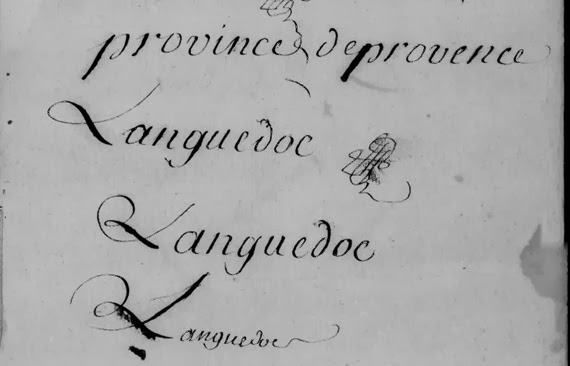 province de provence
Languedoc
Languedoc
Languedoc